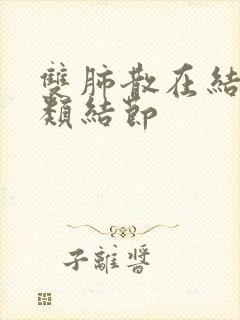 雙肺散在結
類結節
子離醬